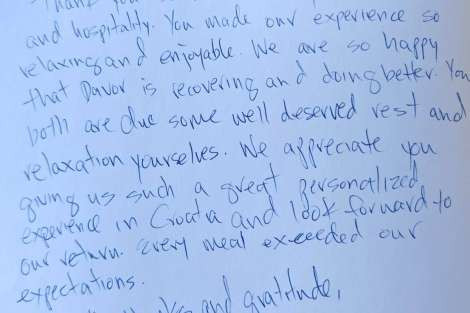 Thank you
and hospitality. You made our experience so
relaxing and enjoyable. We are so happy
that Davor is recovering and doing better. You
both are due some well deserved rest and
relaxation yourselves. We appreciate you
giving us such a great personalized
experience in Croatia and look forward to
our return. Every meal exceeded our
expectations.
and gratitude,